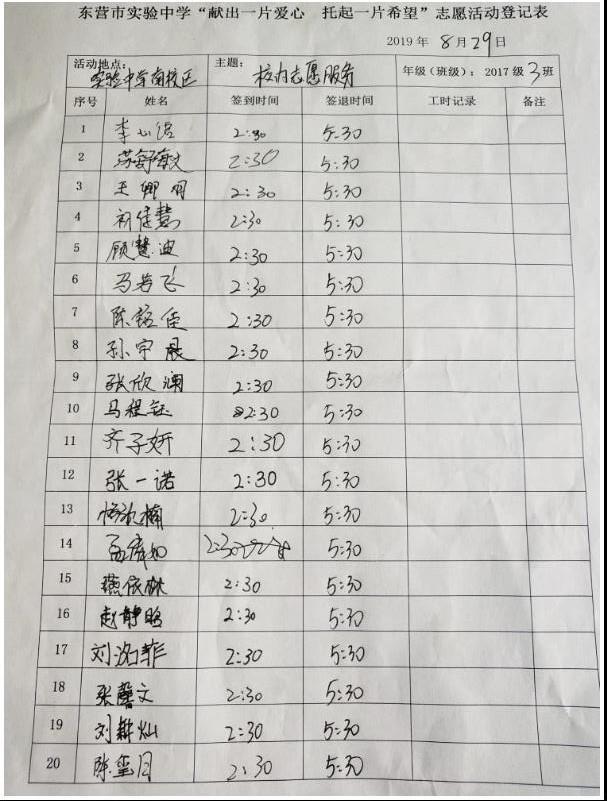 东营市实验中学“献出一片爱心 托起一片希望”志愿活动登记表
2019 年 8 月 29 日
活动地点: 实验中学南校区 主题: 校内志愿服务 年级（班级）：2017 级 3 班
序号 姓名 签到时间 签退时间 工时记录 备注
1 李心 2:30 5:30
2 苏舒 2:30 5:30
3 王卿 2:30 5:30
4 初佳慧 2:30 5:30
5 顾慧迪 2:30 5:30
6 马若飞 2:30 5:30
7 陈铭佳 2:30 5:30
8 孙宇晨 2:30 5:30
9 张欣澜 2:30 5:30
10 马程钰 2:30 5:30
11 齐子妍 2:30 5:30
12 张一诺 2:30 5:30
13 楠 2:30 5:30
14 2:30 5:30
15 燕依林 2:30 5:30
16 赵静晗 2:30 5:30
17 刘洺菲 2:30 5:30
18 张馨文 2:30 5:30
19 刘耕灿 2:30 5:30
20 陈玺月 2:30 5:30